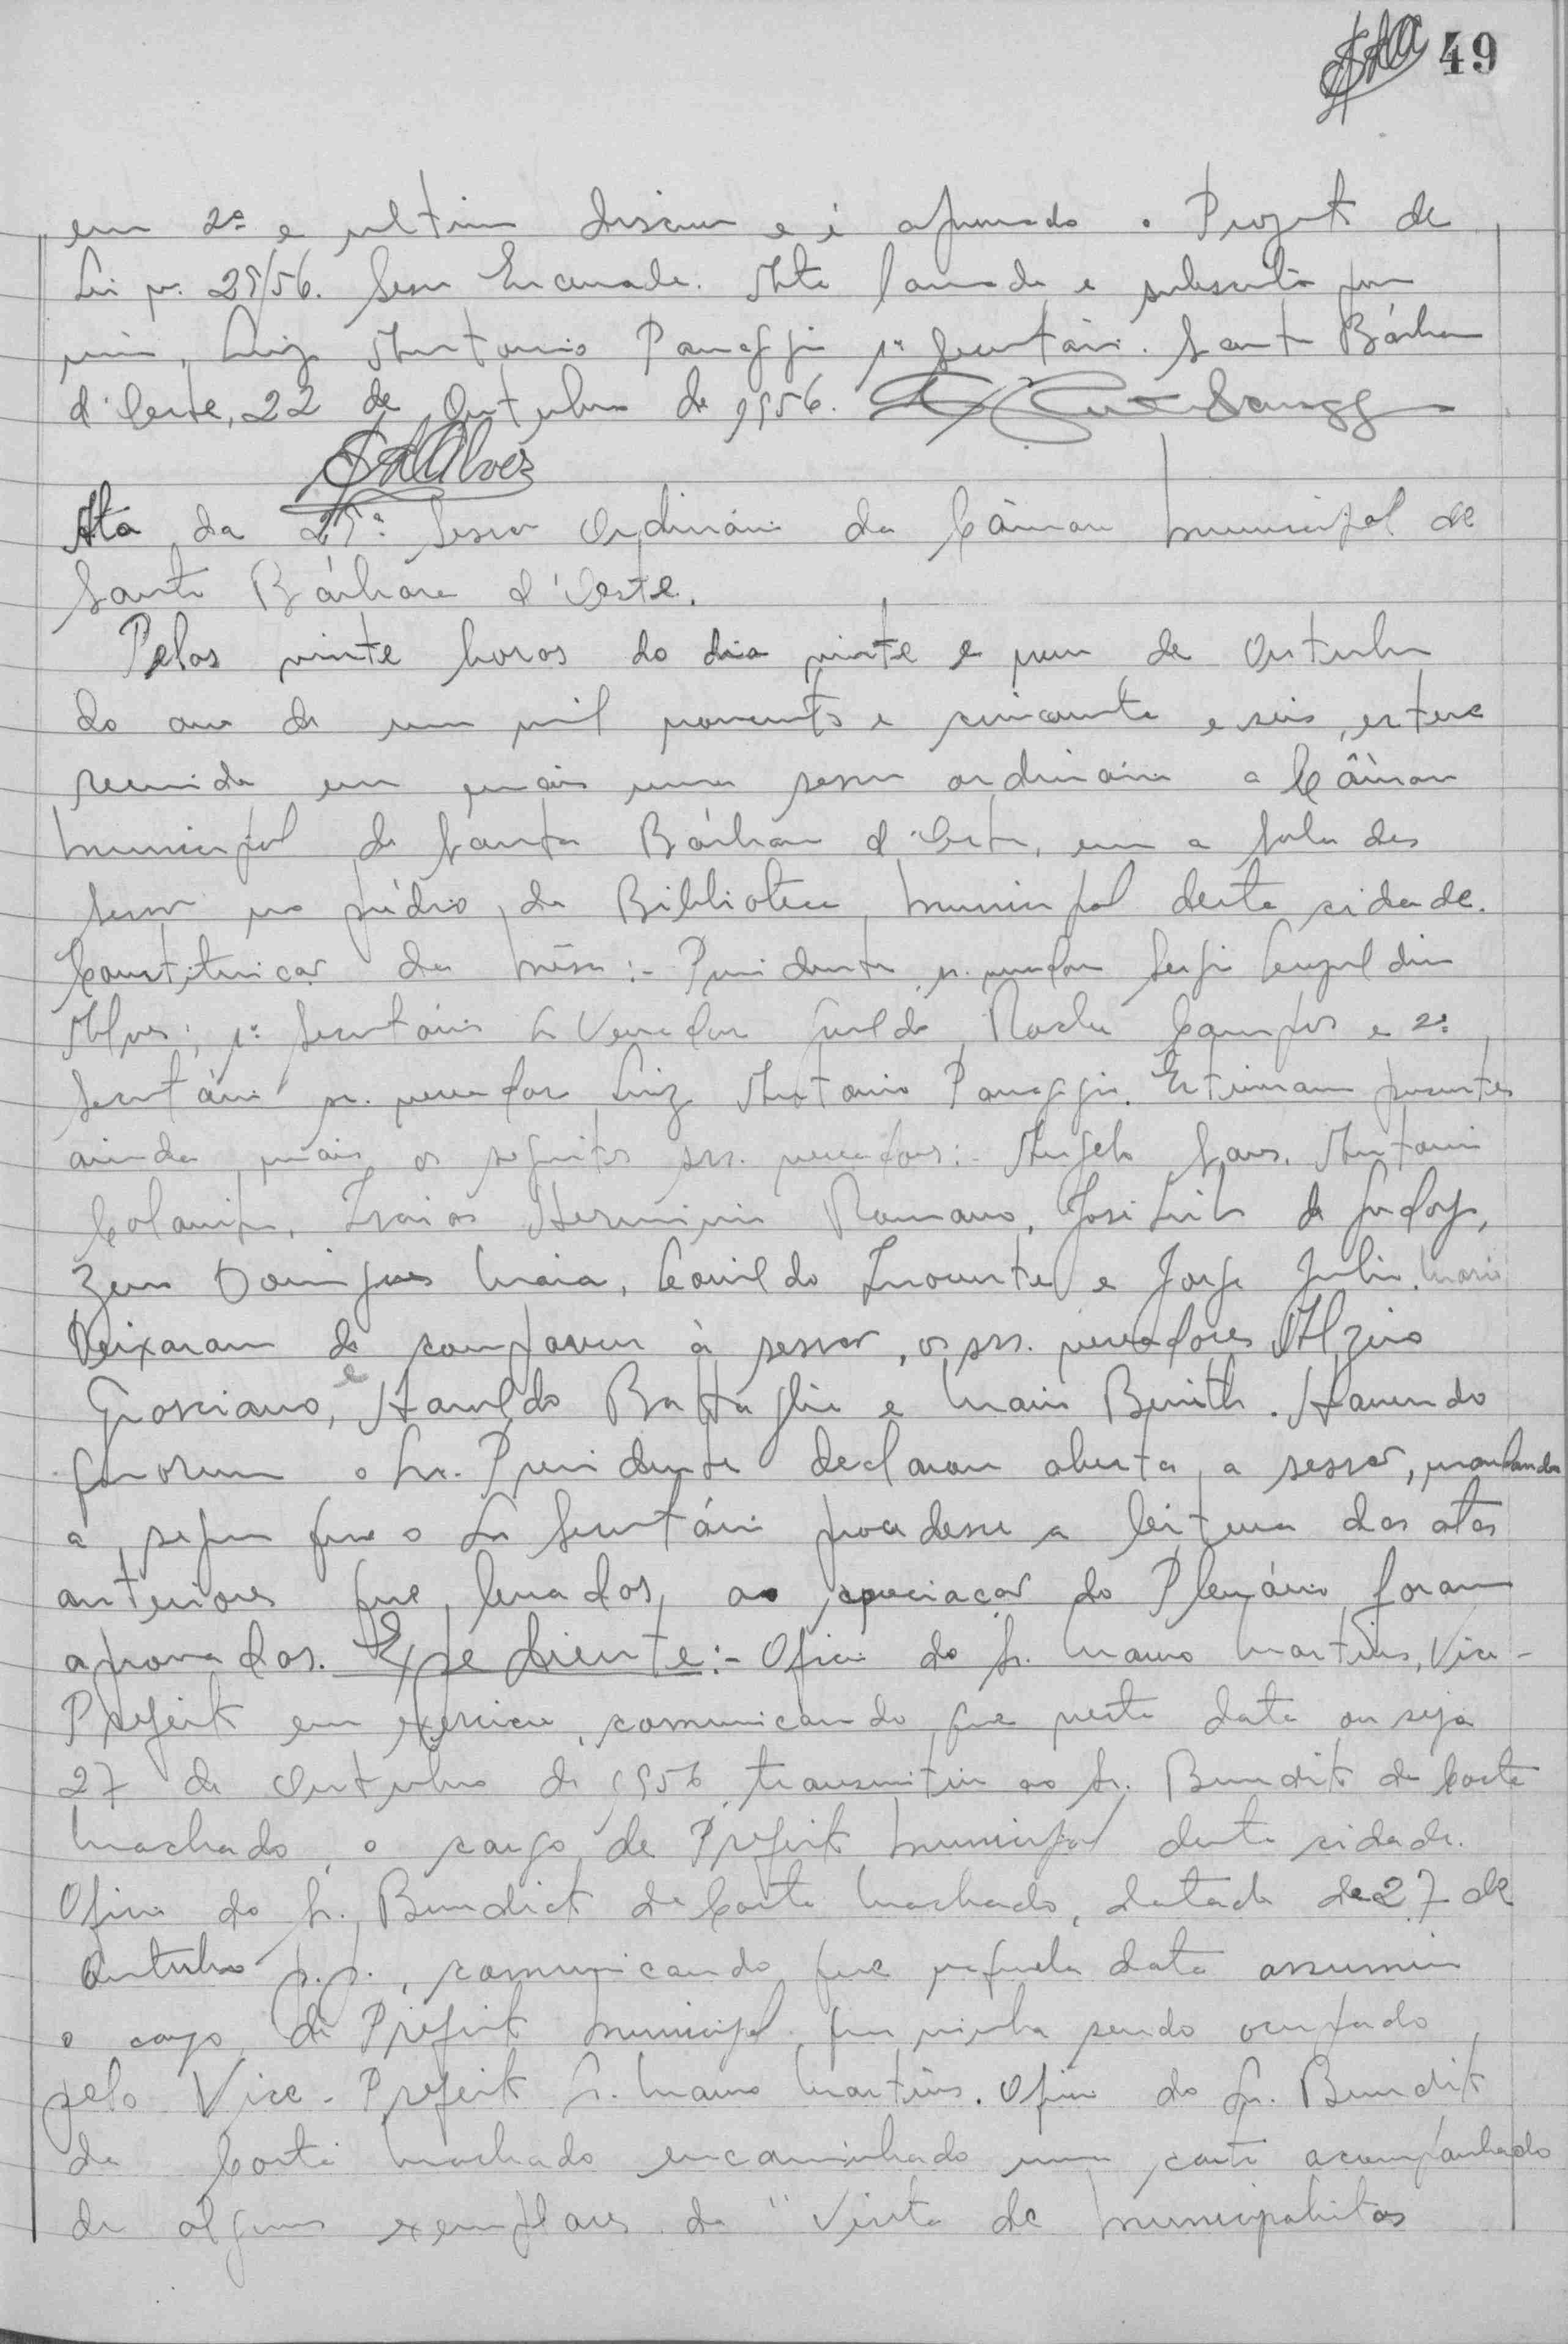 49
em 2ª e ultima discussão e é aprovado o Projeto de
Lei n. 25/56. Sessão Encerrada. Ata lavrada e subscrita por
mim, Luiz Antonio Panaggio 1º Secretário. Santa Bárbara
d'Oeste, 22 de Outubro de 1956.
SLAlves
Ata da 25ª Sessão Ordinária da Câmara Municipal de
Santa Bárbara d'Oeste.
Pelas vinte horas do dia vinte e nove de Outubro
do ano de um mil novecentos e cincoenta e seis, esteve
reunida em mais uma sessão ordinária a Câmara
Municipal de Santa Bárbara d'Oeste, em a sala das
Sessões no prédio da Biblioteca Municipal desta cidade.
Constituição da mêsa:- Presidente, sr. vereador Sergio Leopoldino
Alves; 1º Secretário Sr Vereador Geraldo Rocha Campos e 2º
Secretário sr. vereador Luiz Antonio Panaggio. Estiveram presentes
ainda mais os seguintes srs. vereadores:- Angelo Sans, Antonio
Isaias Herminio Romano, José Luiz de Godoy,
Zeno Domingues Maia, Leonildo Inocente e Jorge Julio. Mario
Deixaram de comparecer à sessão, os srs. vereadores Alzino
Graciano, e Haroldo Battaglia e Mario Benith. Havendo
quorum o Sr. Presidente declarou aberta a sessão, mandando
a seguir que o Sr Secretário procedesse a leitura das atas
anteriores que levadas ao apreciação do Plenário foram
aprovadas. Expediente:- Oficio do Sr. Mauro Martins, Vice-
Prefeito em exercicio, comunicando que nesta data ou seja
27 de Outubro de 1956 transmitiu ao Sr. Benedito da Costa
Machado, o cargo de Prefeito Municipal desta cidade.
Oficio do Sr. Benedicto da Costa Machado, datado de 27 de
Outubro p.p., comunicando que naquela data assumiu
o cargo de Prefeito Municipal que vinha sendo ocupado
pelo Vice-Prefeito Sr. Mauro Martins. Oficio do Sr. Benedito
da Costa Machado encaminhado uma carta acompanhado
de alguns exemplares da "Vista de Municipalistas